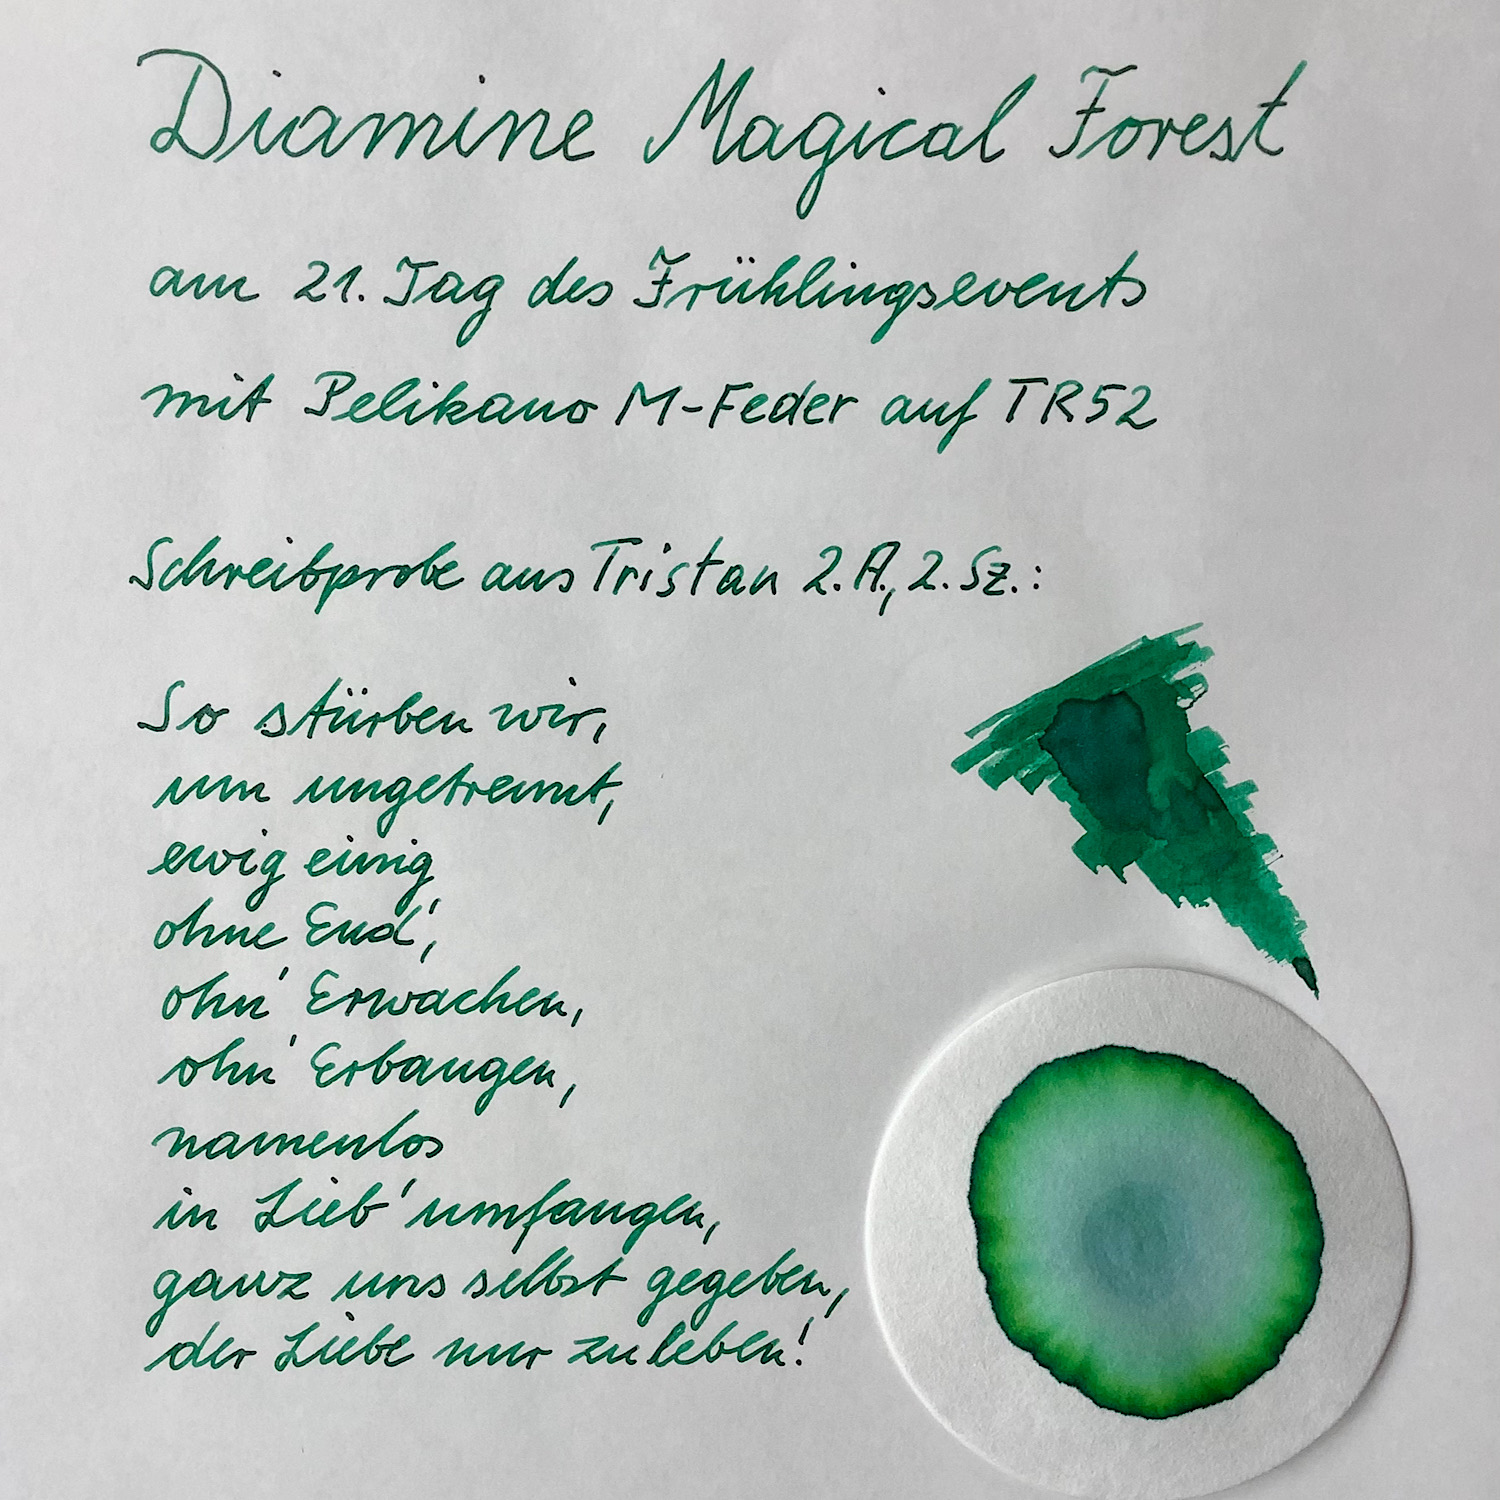 Diamine Magical Forest
am 21. Tag des Frühlingsevents
mit Pelikano M-Feder auf TR52
Schreibprobe aus Tristan 2.A., 2.Sz.:
So stürben wir,
um ungetrennt,
ewig einig
ohne End',
ohn' Erwachen,
ohn' Erbangen,
namenlos
in Lieb' umfangen,
ganz uns selbst gegeben,
der Liebe nur zu leben!